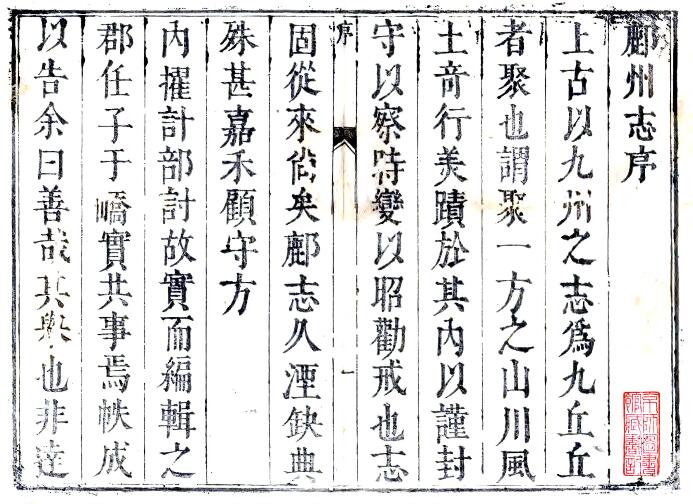 鄜州志序
上古以九州之志爲九丘丘
者聚也謂聚一方之山川風
土竒行美蹟於其内以謹封
守以察時變以昭勸戒也志
序
一
固從來尚矣鄜志久湮缺典
殊甚嘉禾顧守方
内擢計部討故實而編輯之
郡任子于嶠實共事焉帙成
以告余曰善哉其舉也非達